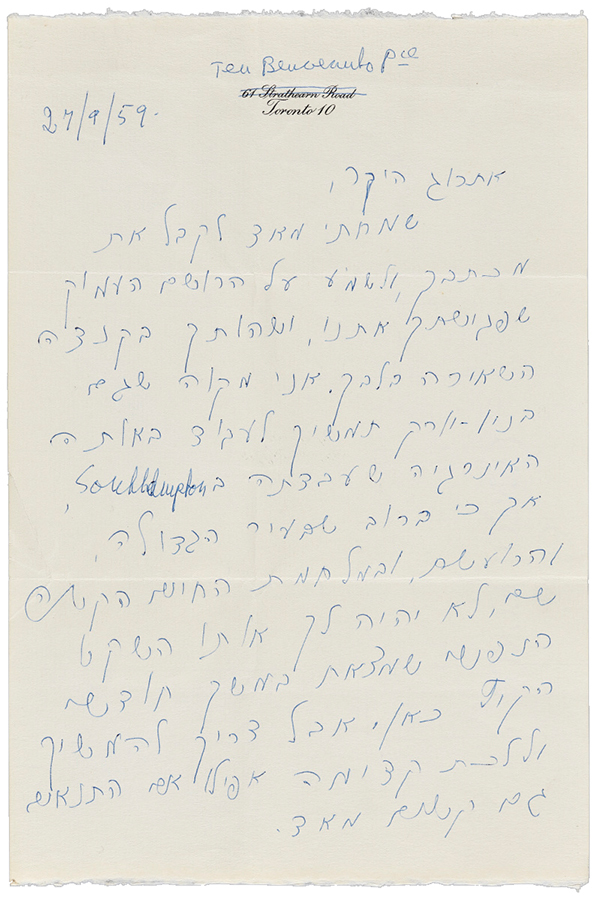 Ten Benvenuto Pce
61 Strathearn Road
Toronto 10
27/9/59.
אתרוג היקר,
שמחתי מאד לקבל את
מכתבך, ולשמע על הרושם העמוק
שפגישתך אתנו, ושהותך בקנדה
השאירה בלבך. אני מקוה שגם
בניו-יורק תמשיך לעבוד באותה
האינרגיה שעבדתה בSouthhampton,
אך כי ברוב שבעיר הגדולה,
והרועשת, ובמלחמת החיים הקשה
שם, לא יהיה לך אותו השקט
הנפשי שמצאת במשך חודשי
הקיץ כאן, אבל צריך להמשיך
וללכת קדימה אפילו אם התנאים
גם קשים מאד.